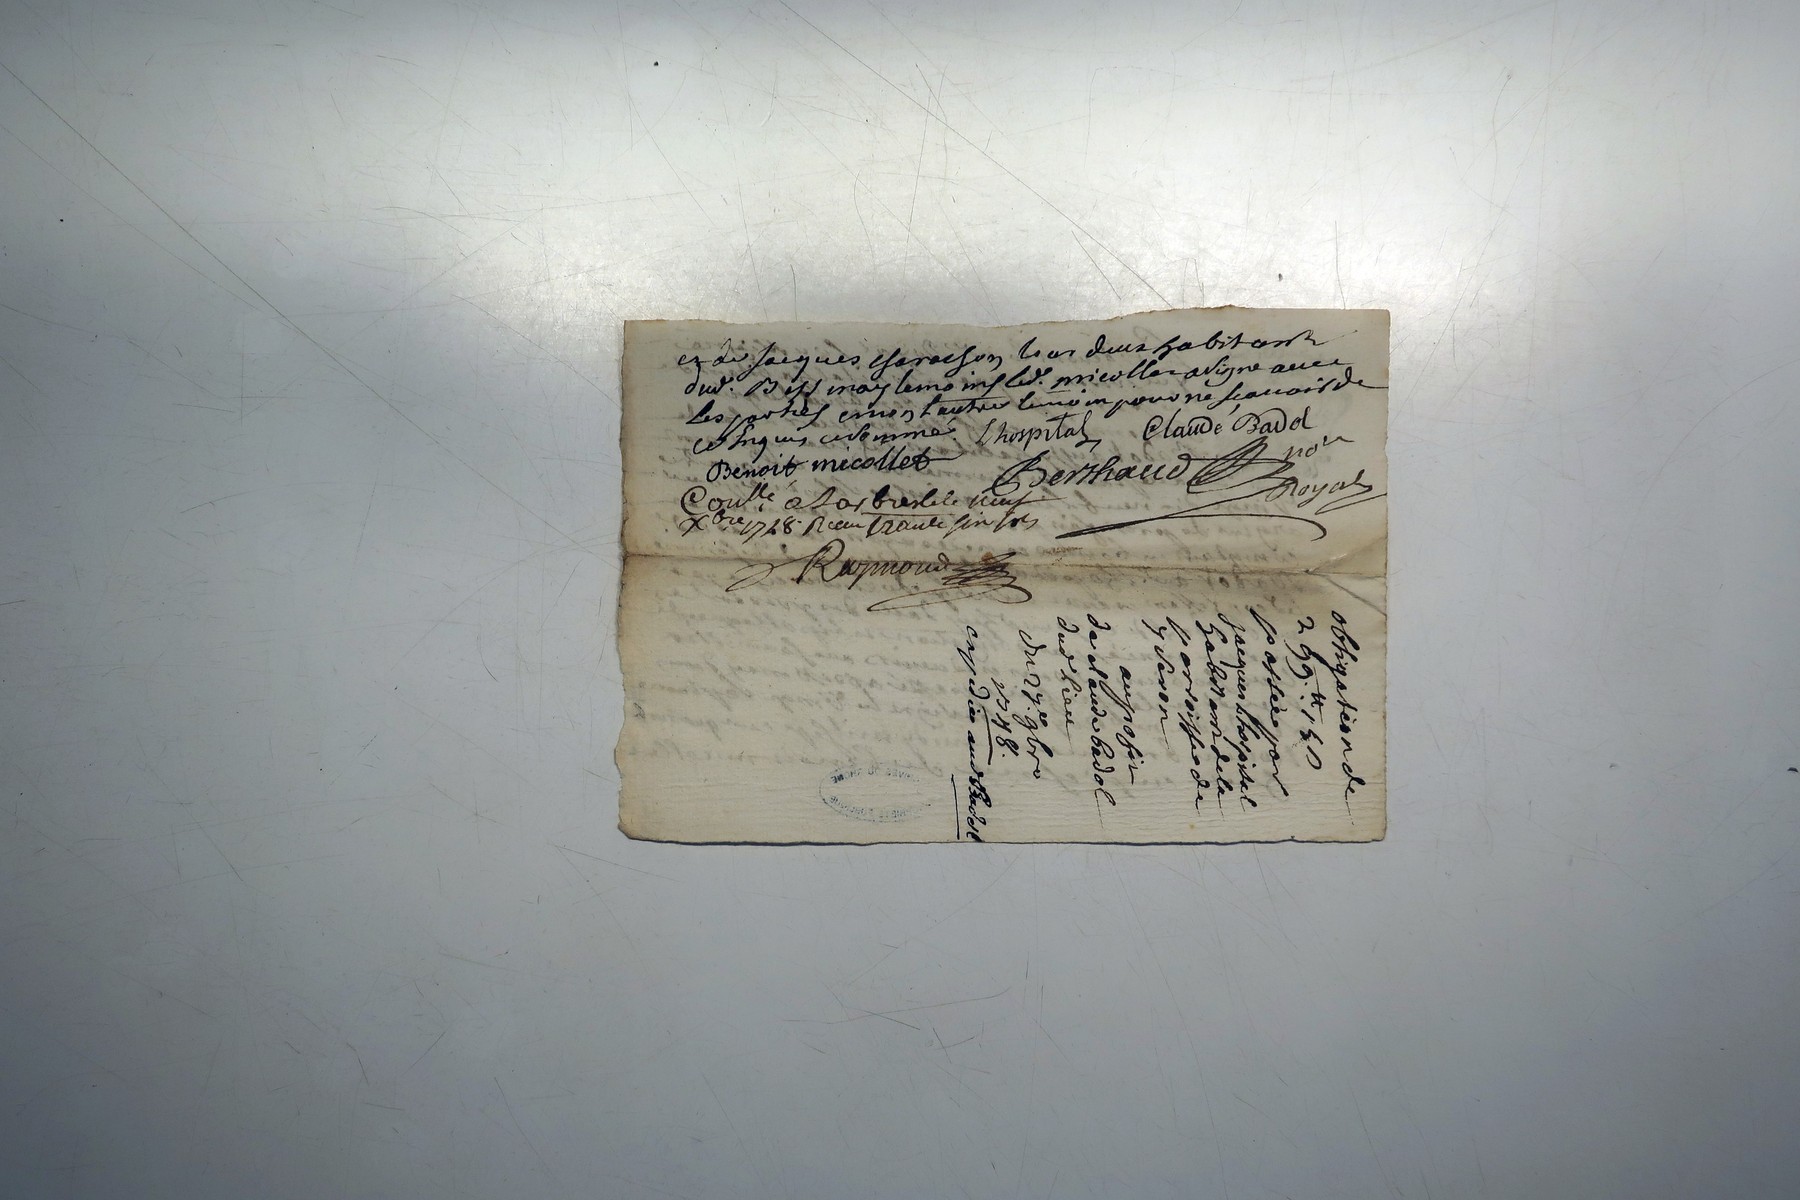 et de Jacques charasson tous deux habitants
dud. Bessenay temoins led. micollet a signe avec
les parties et non l'autre temoin pour ne scavoir de
ce enquis et somme.
Lhospital Claude Badol
Benoit micollet Berthaud no.re
Royal
Con.llé a Larbresle le neuf
X.bre 1748 Receu trante six sols
Raymond
obligation de
269.tt 15 s
passée par
jacques Lhospital
habitant de la
parroisse de
au profit
de claude badol
dud. lieu
du 27.e 9bre
1748.
expedice aud Badol